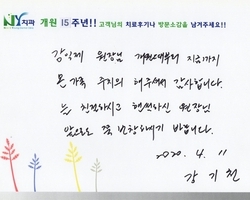 NY치과 개원 15주년!! 고객님의 치료후기나 방문소감을 남겨주세요!!
강익제 원장님 개원때부터 지금까지
온 가족 주치의 해주셔서 감사합니다.
늘 친절하시고 헌신하신 원장님
앞으로도 쭉 번창하시기 바랍니다.
2020. 4. 11
강기천